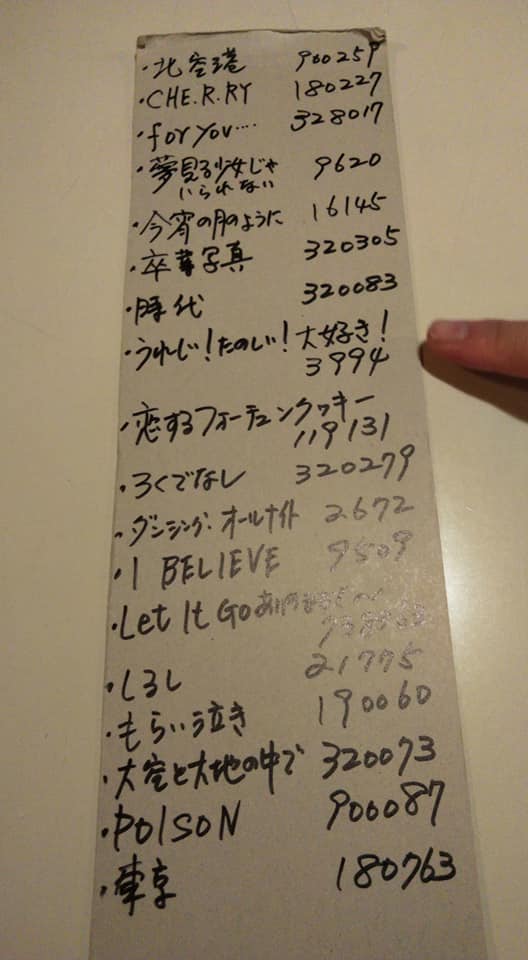 ・北空港 900259
・CHE.R.RY 180227
・for you‥‥ 328017
・夢見る少女じゃ 9620
いられない
・今宵の月のように 16145
・卒業写真 320305
・時代 320083
・うれしい!たのしい!大好き!
3994
・恋するフォーチュンクッキー
119131
・ろくでなし 320279
・ダンシング・オールナイト 2672
・I BELIEVE 9509
・Let It Go ありのままで〜
・しるし 21775
・もらい泣き 190060
・大空と大地の中で 320073
・POISON 900087
・東京 180763